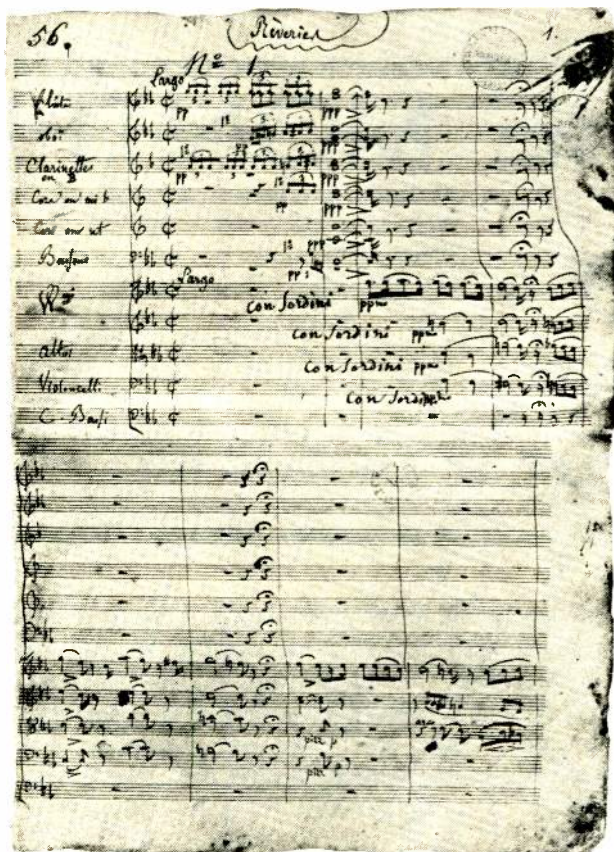 56. Rêveries 1.
No 1
Largo
Flûte
pp
Oboi
Clarinettes
en B
pp pp
ppp
Cors en mi b
pp ppp
Cors en ut
Bassons
pp ppp
Largo
Con Sordini pp
Con Sordini pp
Altos
Con Sordini pp
Violoncelli
Con Sordini
C. Bassi
pizz p
pizz p